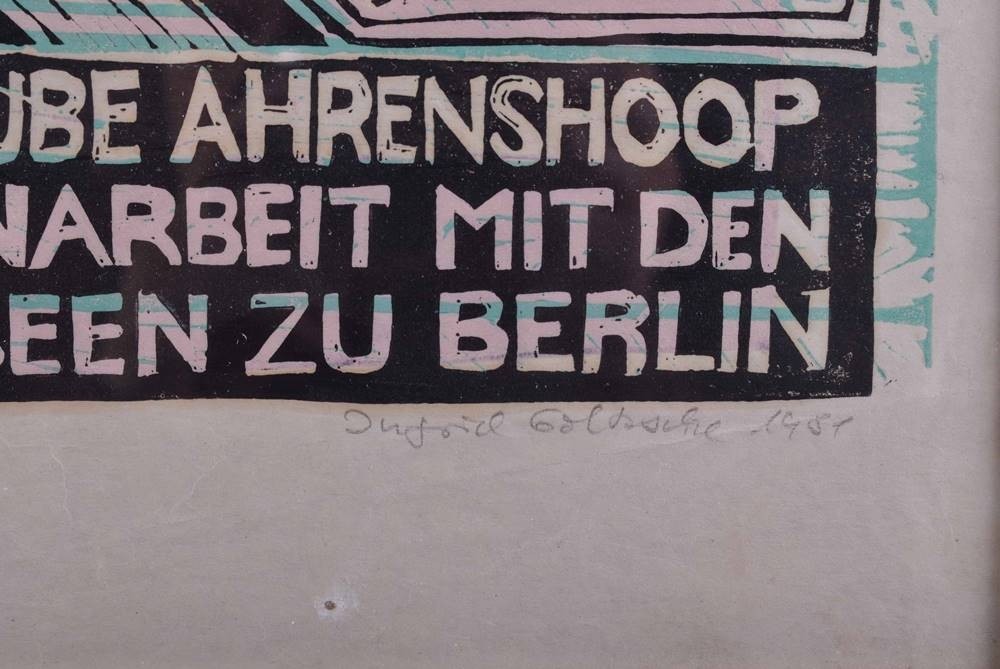 UBE AHRENSHOOP
NARBEIT MIT DEN
EEN ZU BERLIN
Ingrid Goltzsche 1981